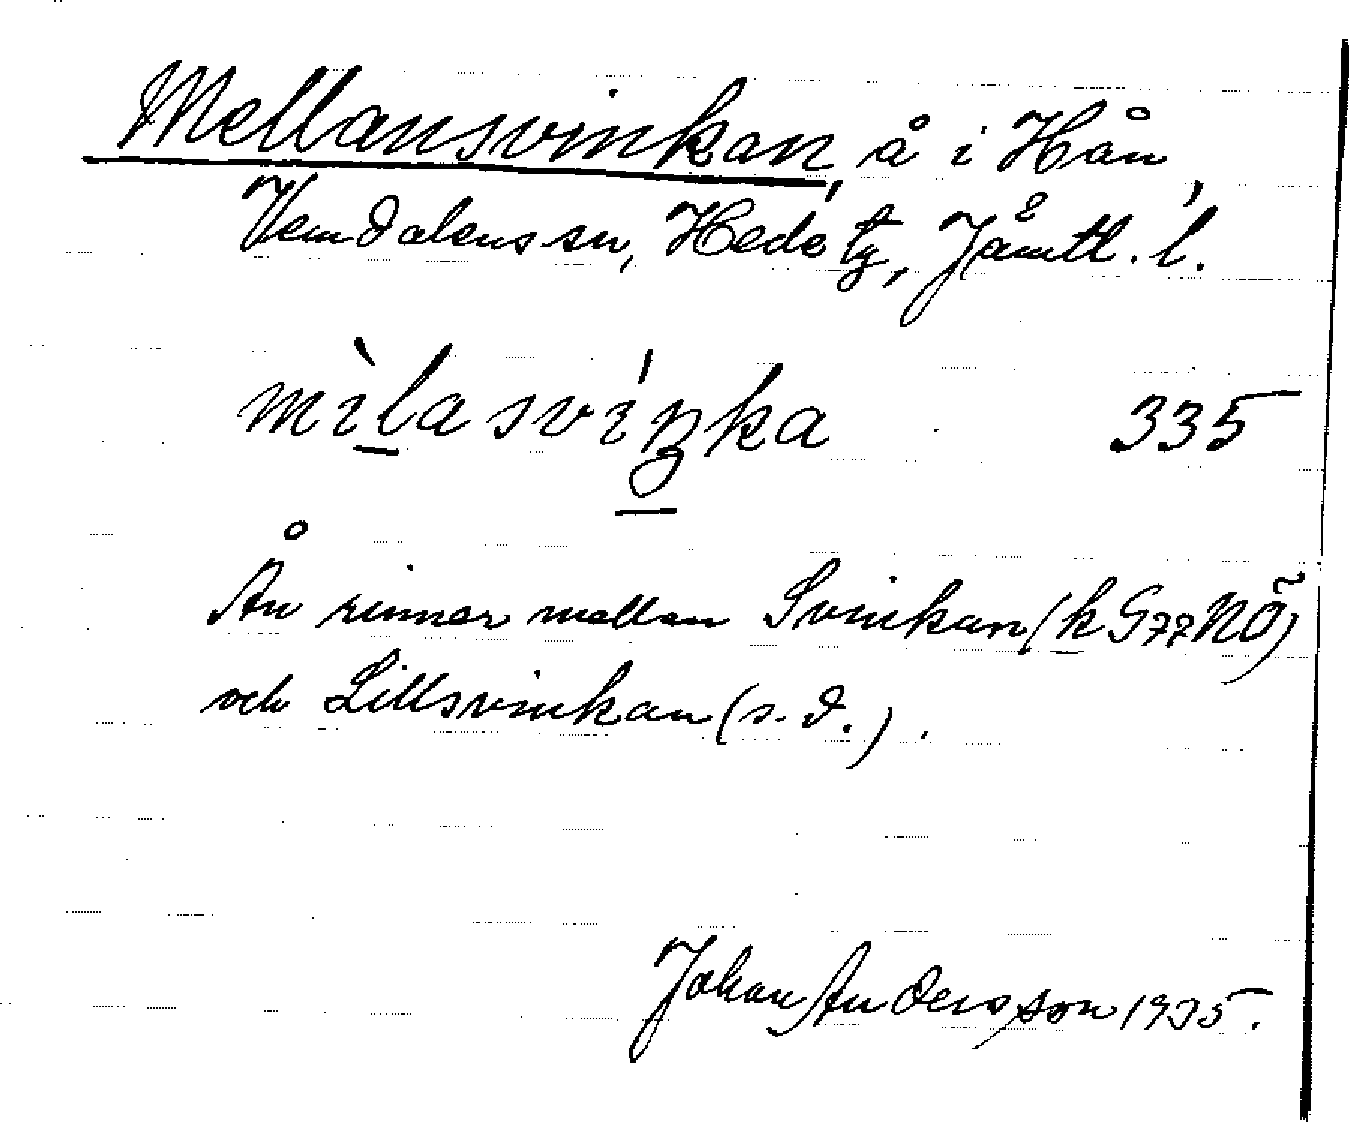 Mellansvinkan, å i Hån,
Vemdalens sn, Hede tg, Jämtl. l.
mìlasvíŋka 335
Ån rinner mellan Svinkan (k G77NÖ)
och Lillsvinkan (s. d.).
Johan Andersson 1935.